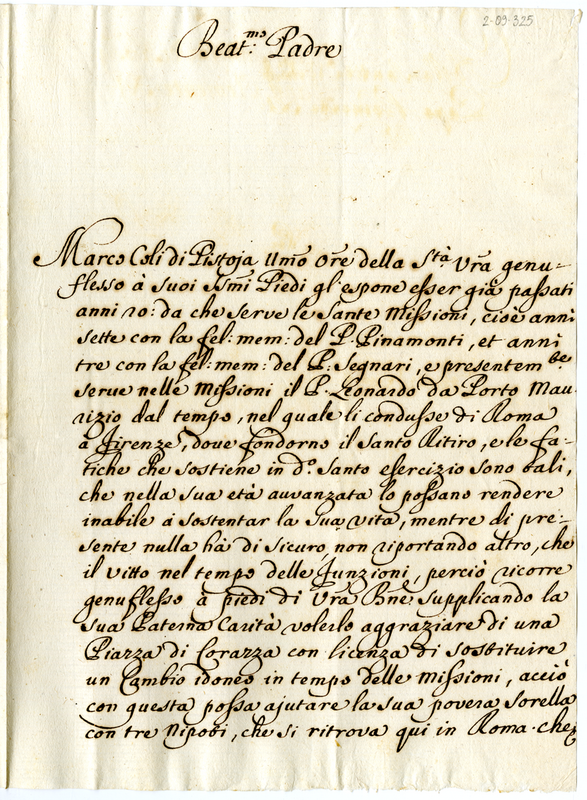 2-09-325
Beat.mo Padre
Marco Coli di Pistoja Umo Ore della Stà Vra genu-
flesso à suoi Ssmi Piedi gl'espone esser già passati
anni 20: da che serve le Sante Missioni, cioè anni
sette con la fel: mem: del P. Pinamonti, et anni
tre con la fel: mem: del P: Segnari, e presentem.te
serve nelle Missioni il P. Leonardo da Porto Mau-
rizio dal tempo, nel quale li condusse di Roma
à Firenze, dove fondorno il Santo Ritiro, e le fa-
tiche che sostiene in d.o Santo esercizio sono tali,
che nella sua età avvanzata lo possano rendere
inabile à sostentar la sua vita, mentre di pre-
sente nulla hà di sicuro, non riportando altro, che
il vitto nel tempo delle funzioni, perciò ricorre
genuflesso à piedi di Vra Bne: supplicando la
sua Paterna Carità volerlo aggraziare di una
Piazza di Corazza con licenza di sostituire
un Cambio idoneo in tempo delle Missioni, acciò
con questa possa ajutare la sua povera sorella
con tre Nipoti, che si ritrova qui in Roma. che